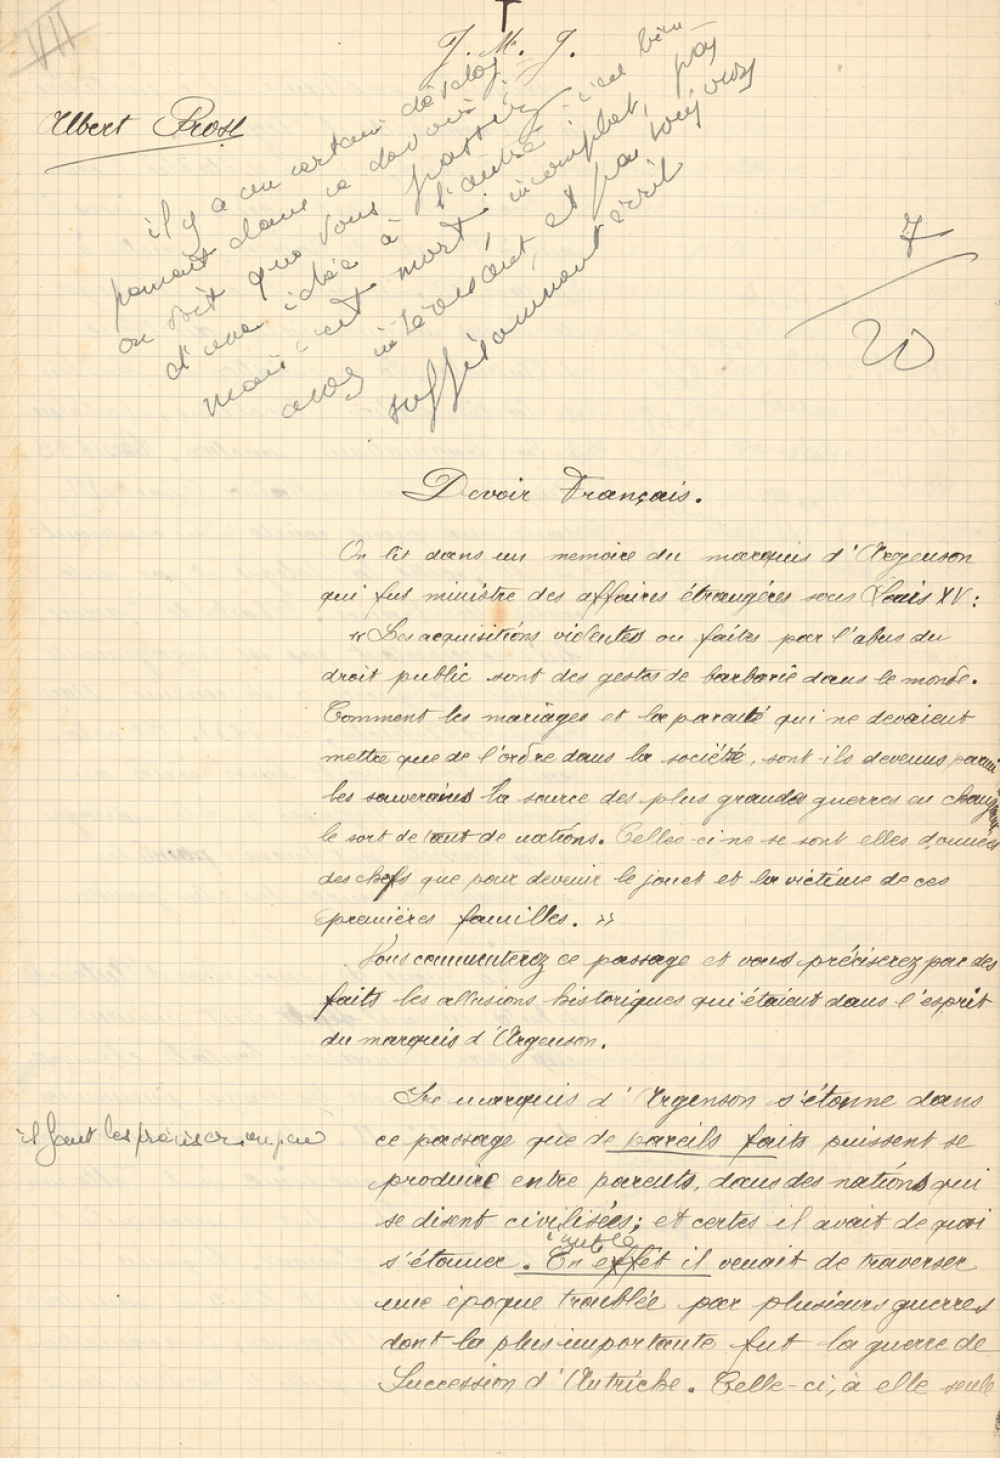 VII
J. M. J.
Albert Prost
il y a un certain dévelop
pement dans ce devoir :
on voit que vous passez
d'une idée à l'autre : c'est bien
mais c'est mort, incomplet, pas
assez intéressant, et pas toujours
suffisamment écrit
7
20
Devoir Français.
On lit dans un memoire du marquis d'Argenson
qui fut ministre des affaires étrangéres sous Louis XV :
"Les acquisitions violentes ou faites par l'abus du
droit public sont des gestes de barbarie dans le monde.
Comment les mariages et la parenté qui ne devaient
mettre que de l'ordre dans la société, sont-ils devenus parmi
les souverains la source des plus grandes guerres en changeant
le sort de tant de nations. Celles-ci ne se sont elles données
des chefs que pour devenir le jouet et la victime de ces
premières familles. »
Vous commenterez ce passage et vous préciserez par des
faits les allusions historiques qui étaient dans l'esprit
du marquis d'Argenson.
Le marquis d'Argenson s'étonne dans
il faut les préciser un peu
ce passage que de pareils faits puissent se
produire entre parents, dans des nations qui
se disent civilisées; et certes il avait de quoi
inutile
s'étonner. En effet il venait de traverser
une époque troublée par plusieurs guerres
dont la plus importante fut la guerre de
Succession d'Autriche. Celle-ci, à elle seule